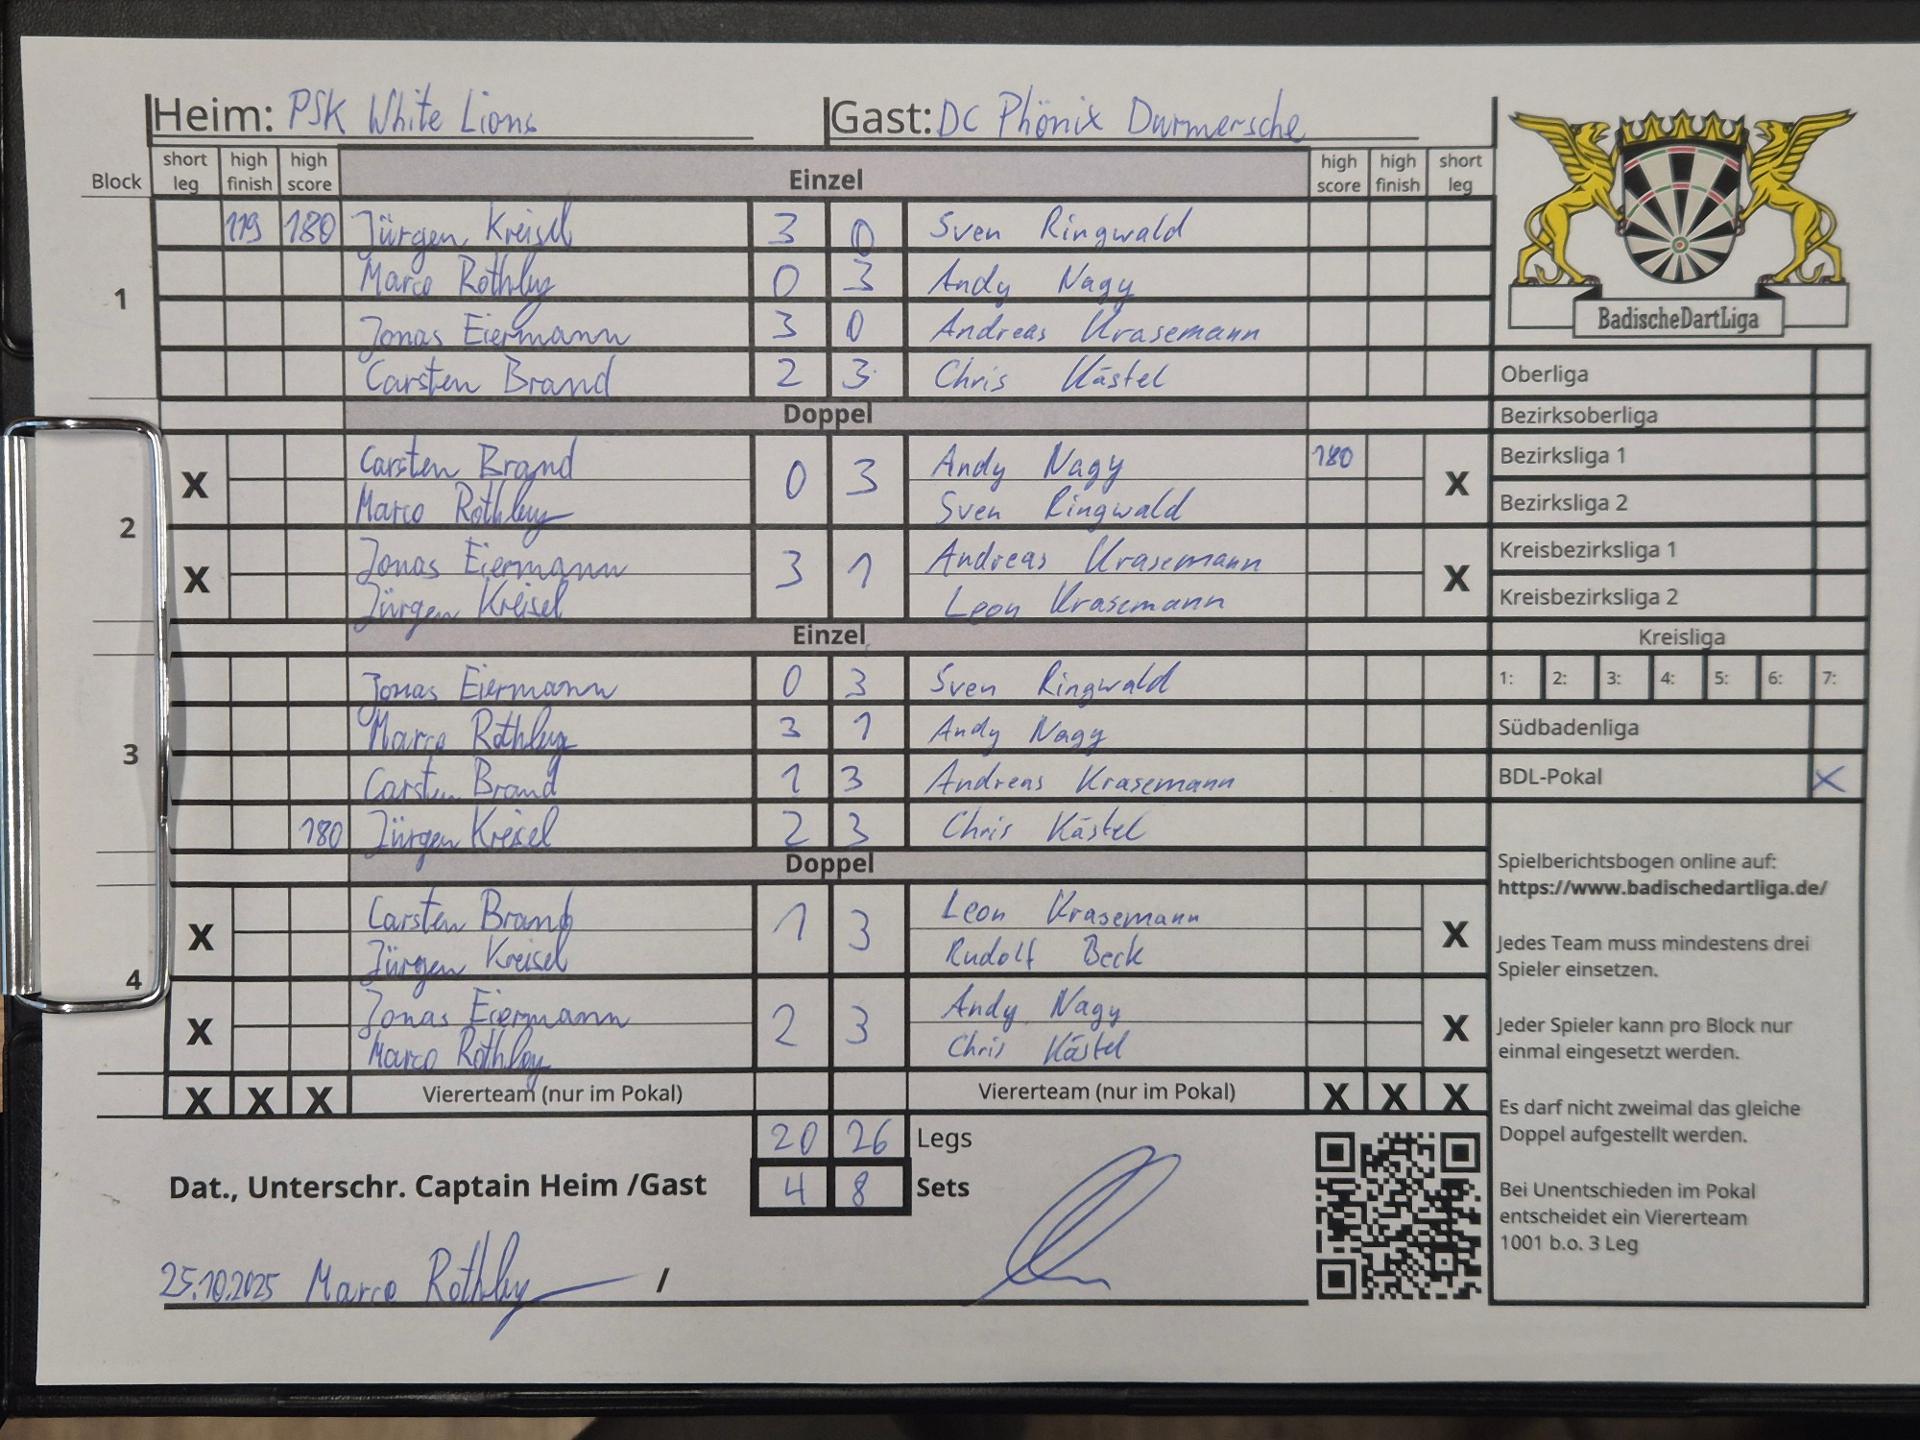 Heim: PSK White Lions Gast: DC Phönix Durmersche
Block short leg high finish high score Einzel high score high finish short leg
1
119 180 Jürgen Kreisel 3 0 Sven Ringwald
Marco Rothley 0 3 Andy Nagy
Jonas Eiermann 3 0 Andreas Krasemann
Carsten Brand 2 3 Chris Kästel
Doppel
2
X Carsten Brand 0 3 Andy Nagy 180 X
Marco Rothley Sven Ringwald
X Jonas Eiermann 3 1 Andreas Krasemann X
Jürgen Kreisel Leon Krasemann
Einzel
3
Jonas Eiermann 0 3 Sven Ringwald
Marco Rothley 3 1 Andy Nagy
Carsten Brand 1 3 Andreas Krasemann
180 Jürgen Kreisel 2 3 Chris Kästel
Doppel
4
X Carsten Brand 1 3 Leon Krasemann X
Jürgen Kreisel Rudolf Beck
X Jonas Eiermann 2 3 Andy Nagy X
Marco Rothley Chris Kästel
X X X Viererteam (nur im Pokal) Viererteam (nur im Pokal) X X X
20 26 Legs
Dat., Unterschr. Captain Heim /Gast 4 8 Sets
25.10.2025 Marco Rothley /
BadischeDartLiga
Oberliga
Bezirksoberliga
Bezirksliga 1
Bezirksliga 2
Kreisbezirksliga 1
Kreisbezirksliga 2
Kreisliga
1: 2: 3: 4: 5: 6: 7:
Südbadenliga
BDL-Pokal X
Spielberichtsbogen online auf:
https://www.badischedartliga.de/
Jedes Team muss mindestens drei
Spieler einsetzen.
Jeder Spieler kann pro Block nur
einmal eingesetzt werden.
Es darf nicht zweimal das gleiche
Doppel aufgestellt werden.
Bei Unentschieden im Pokal
entscheidet ein Viererteam
1001 b.o. 3 Leg